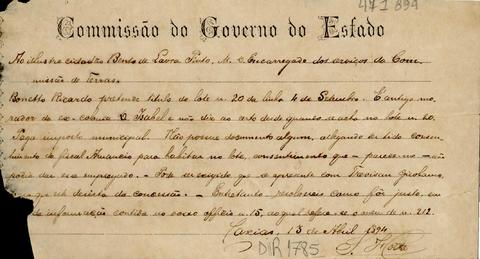 471 894
Commissão do Governo do Estado
Ao illustre cidadão Bento de Lavra Pinto, M. D. Encarregado dos serviços da Com
missão de Terras.
Bonetto Ricardo pretende titulo do lote n. 20 da linha 4 de Setembro. É antigo mo
rador da ex-colonia D. Izabel e não diz ao certo desde quando se acha no lote n. 20.
Paga imposto municipal. Não possue documento algum, allegando ter tido consen
timento do fiscal Amancio para habitar no lote, consentimento que — parece-me — não
podia dar esse empregado. — Pode ser exigido que se apresente com Trevisan Girolamo,
que este desista da concessão. — Entretanto, resolvereis como fôr justo, em
da informação contida no vosso officio n. 15, ao qual refere-se o meu de n. 212.
Caxias, 13 de Abril 1894
DIR 1785